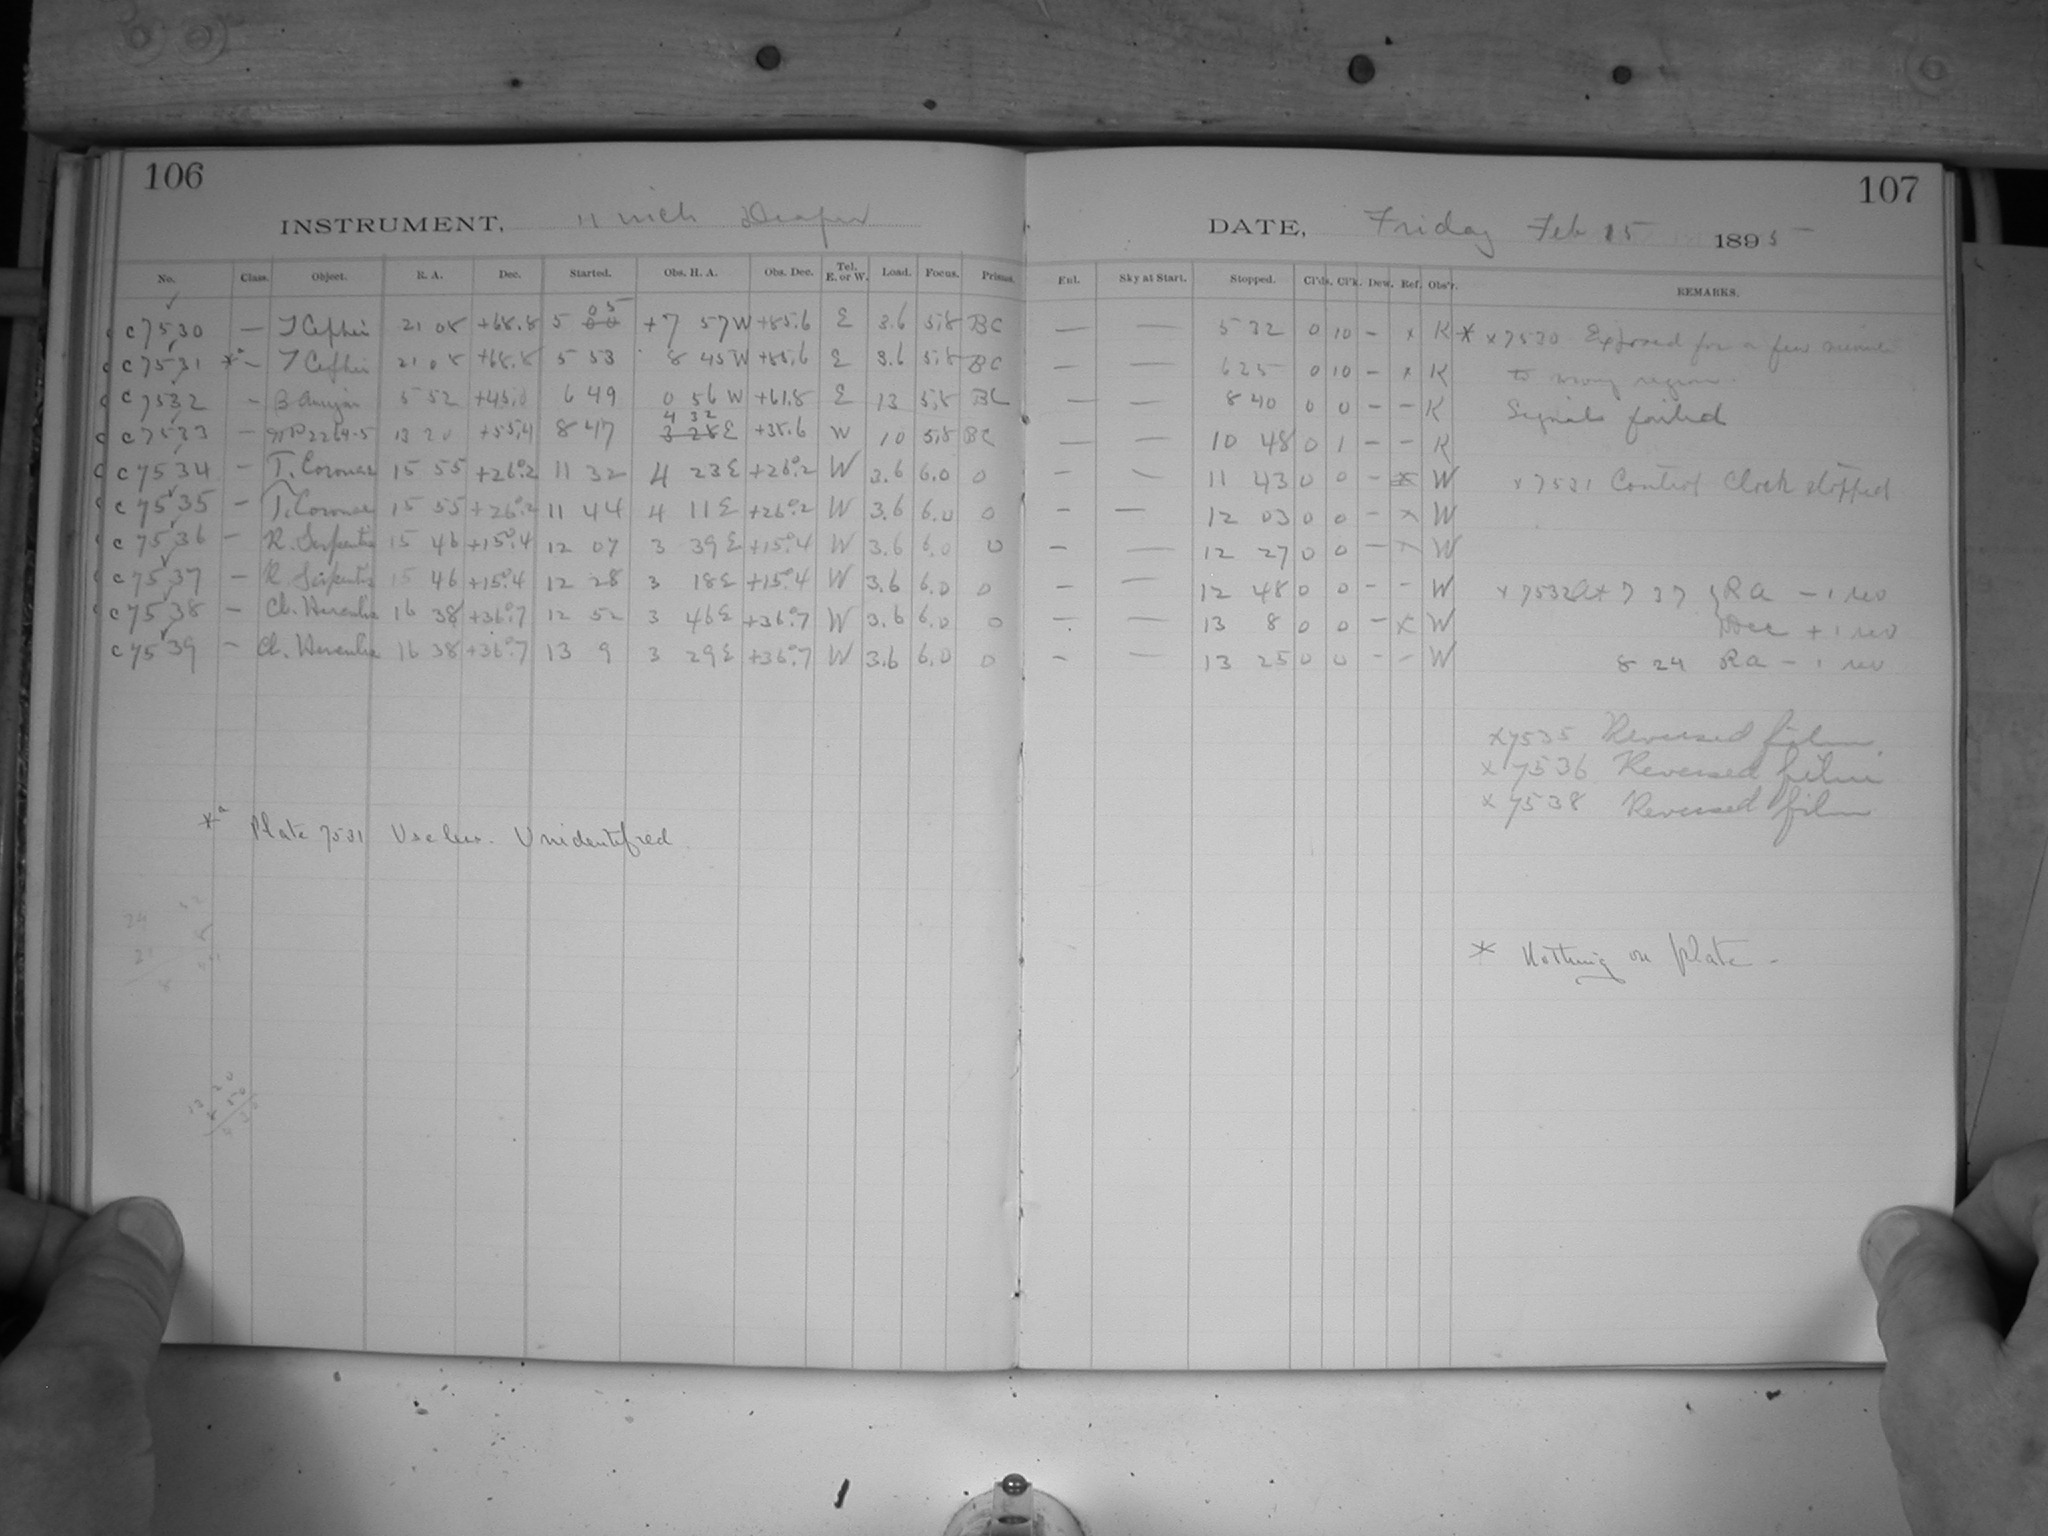 106
INSTRUMENT, 11 inch Draper
No. Class. Object. R. A. Dec. Started. Obs. H. A. Obs. Dec. Tel. E. or W. Load. Focus. Prisms.
c 7530 — T Cephei 21 08 +68.8 5 05 +7 57 W +85.6 E 3.6 5.8 BC
c 7531 *a — T Cephei 21 08 +68.8 5 53 8 45 W +85.6 E 3.6 5.8 BC
c 7532 — B Aurigae 5 52 +45.0 6 49 0 56 W +61.8 E 13 5.8 BC
c 7533 — 2264-5 13 20 +55.4 8 47 4 32 E +38.6 W 10 5.8 BC
c 7534 — T. Coronae 15 55 +26°.2 11 32 4 23 E +26°.2 W 3.6 6.0 0
c 7535 — T. Coronae 15 55 +26°.2 11 44 4 11 E +26°.2 W 3.6 6.0 0
c 7536 — R. Serpentis 15 46 +15°.4 12 07 3 39 E +15°.4 W 3.6 6.0 0
c 7537 — R. Serpentis 15 46 +15°.4 12 28 3 18 E +15°.4 W 3.6 6.0 0
c 7538 — Cl. Herculis 16 38 +36°.7 12 52 3 46 E +36°.7 W 3.6 6.0 0
c 7539 — Cl. Herculis 16 38 +36°.7 13 9 3 29 E +36°.7 W 3.6 6.0 0
*a Plate 7531 Useless. Unidentified
107
DATE, Friday Feb 15 1895
Ext. Sky at Start. Stopped. Cl'ds. Cl'k. Dew. Ref. Obs'r. REMARKS.
— — 5 32 0 10 – x K * x 7530 Exposed for a few minutes
— — 6 25 0 10 – x K to wrong region.
— — 8 40 0 0 – – K Signals failed
— — 10 48 0 1 – – K
– — 11 43 0 0 – W x 7531 Control Clock stopped
– — 12 03 0 0 – x W
– — 12 27 0 0 – x W
– — 12 48 0 0 – – W x 7532 7 37 { RA – 1 rev
– — 13 8 0 0 – x W Dec + 1 rev
– — 13 25 0 0 – – W 8 24 RA – 1 rev
x 7535 Reversed film.
x 7536 Reversed film
x 7538 Reversed film
* Nothing on plate –